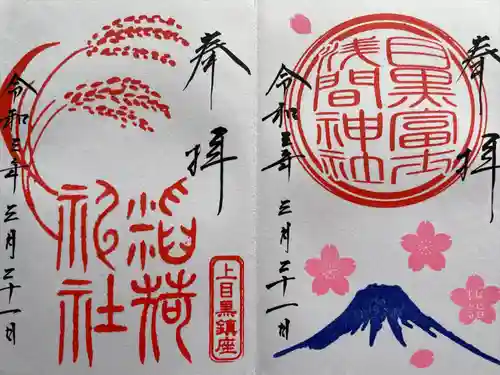 奉拝
稲荷
上目黒鎮座
令和三年三月二十一日
奉拝
目黒富士
浅間神社
令和三年三月二十一日